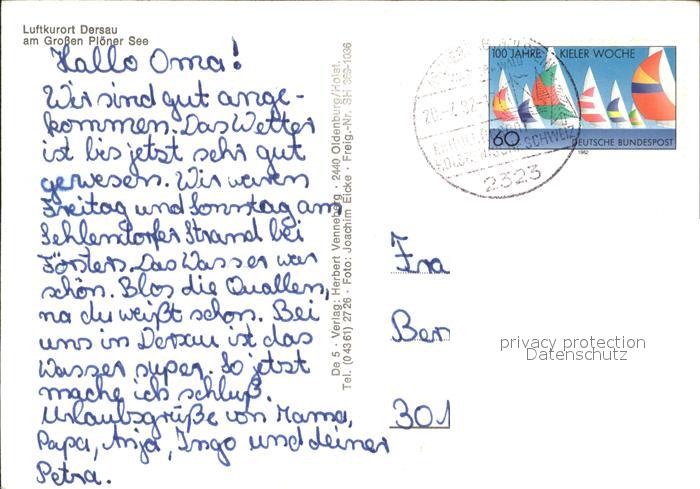 Luftkurort Dersau
am Großen Plöner See
Hallo Oma!
Wir sind gut ange-
kommen. Das Wetter
ist bis jetzt sehr gut
gewesen. Wir waren
Freitag und Sonntag am
Sehlendorfer Strand bei
Försters. Das Wasser war
schön. Blos die Quallen,
na du weißt schon. Bei
uns in Dersau ist das
Wasser super. So jetzt
mache ich schluß.
Urlaubsgrüße von Mama,
Papa, Anja, Ingo und deiner
Petra.
De 5 · Verlag: Herbert Venneberg · 2440 Oldenburg/Holst.
Tel. (0 43 61) 27 26 · Foto: Joachim Eicke · Freig.-Nr. SH 369-1036
100 JAHRE KIELER WOCHE
60
DEUTSCHE BUNDESPOST
1982
SCHWEIZ
2323
Fra
Ber
301
privacy protection
Datenschutz